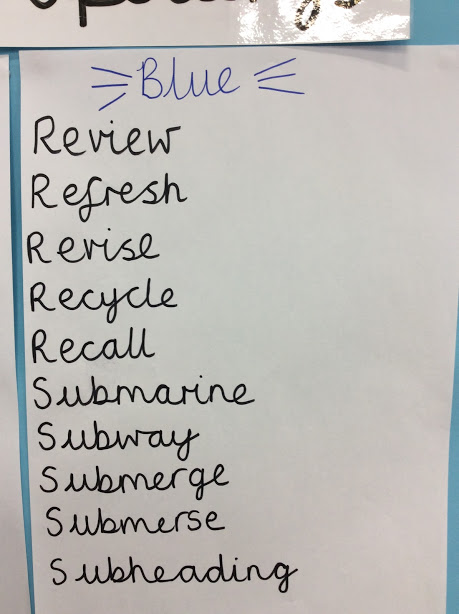 Blue
Review
Refresh
Revise
Recycle
Recall
Submarine
Subway
Submerge
Submerse
Subheading